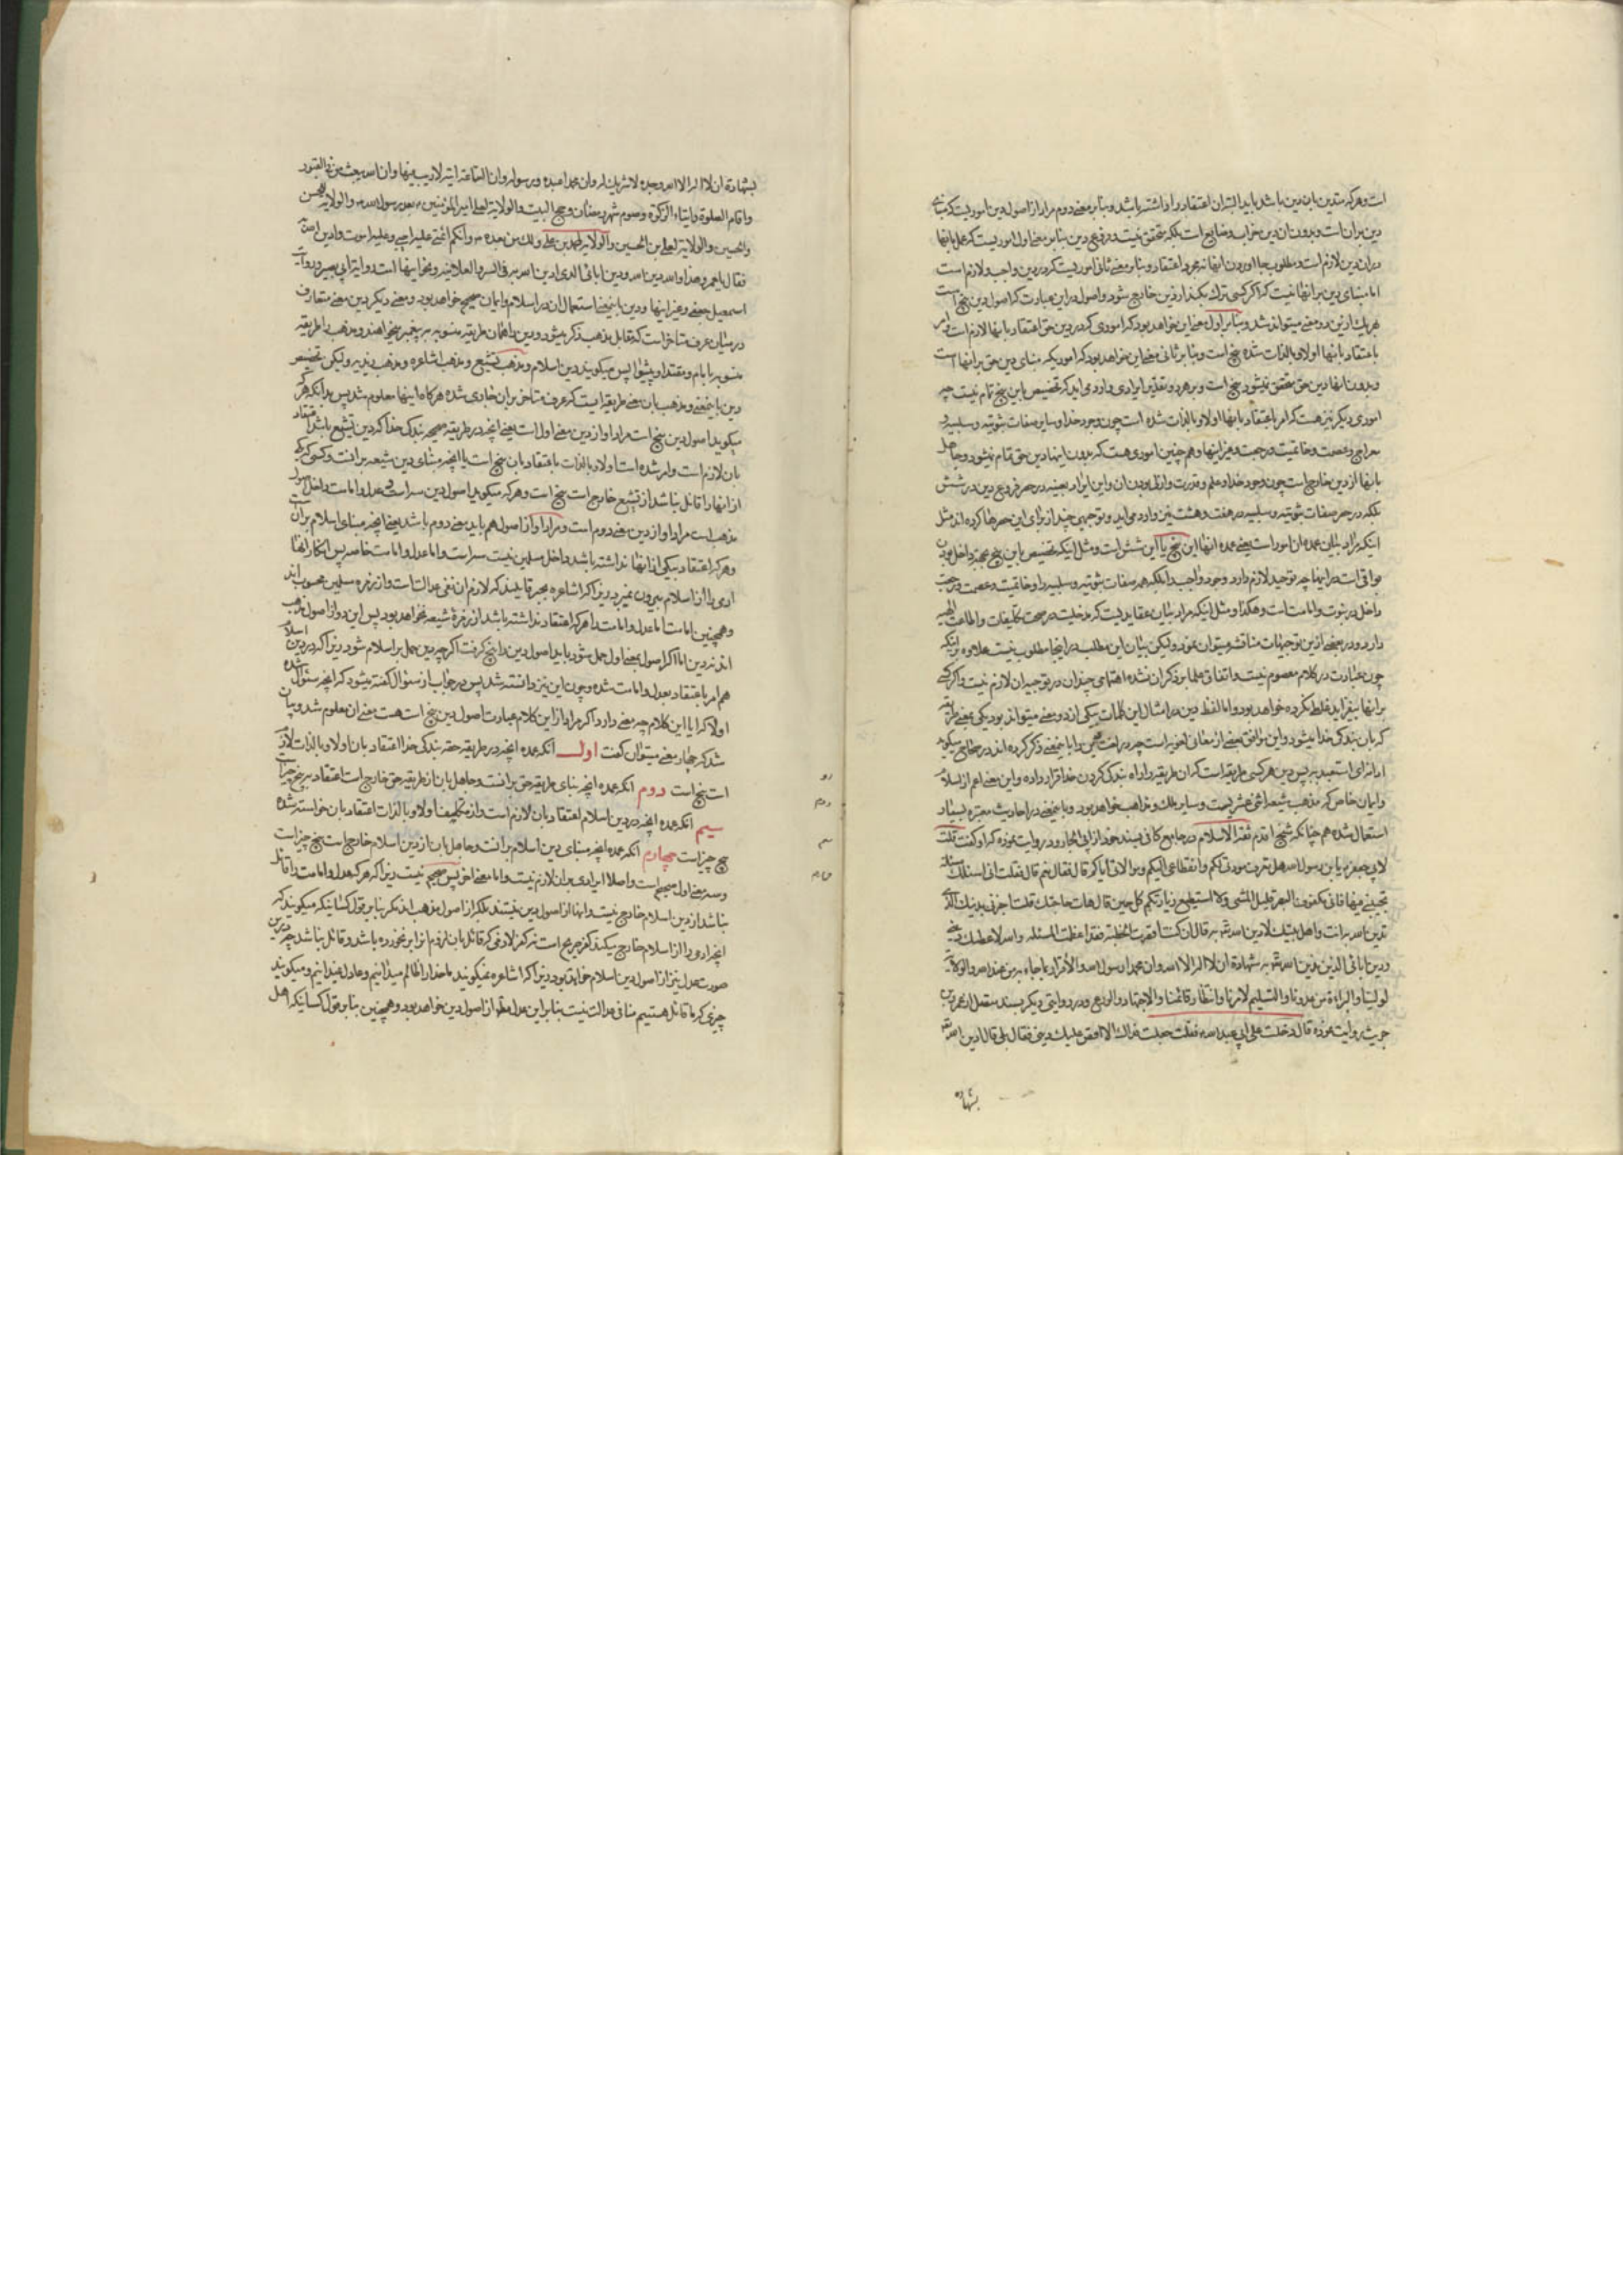 است و هر که متدین بان دین باشد باید البته ان اعتقاد را داشته باشد و بنابر معنے دوم مراد از اصول دین امور یست که بنای
دین بر ان است و بدون ان دین خراب و ضایع است بلکه متحقق نیست و فروع دین بنا بر معنے اول امور یست که عمل بانها
در ان دین لازم است و مطلوب بجا اوردن انها نه مجرد اعتقاد و بنابر معنے ثانی امور یست که در دین واجب و لازم است
اما بنای دین بر انها نیست که اگر کسی ترك یکی کند از دین خارج شود و اصول در این عبارت که اصول دین پنج است
هر یك از این دو معنے میتواند شد و بنابر اول معنے این خواهد بود که اموری که در دین حق اعتقاد بانها لازم است و امر
باعتقاد بانها اولا و بالذات شده پنج است و بنابر ثانی معنے این خواهد بود که امور یکه بنای دین حق بر انها است
و بدون انها دین حق متحقق نمیشود پنج است و بر هر دو تقدیر ایرادی وارد می اید که تخصیص باین پنج تمام نیست چه
اموری دیگر نیز هست که امر باعتقاد بانها اولا و بالذات شده است چون وجود خدا و سایر صفات ثبوتیه و سلبیه و
معراج و عصمت و خاتمیت و رجعت و غیر اینها و هم چنین اموری هست که بدون اینها دین حق تمام نمیشود و جاهل
بانها از دین خارج است چون وجود خدا و علم و قدرت و ازلی بودن ان و این ایراد بعینه در حصر فروع دین در شش
بلکه در حصر صفات ثبوتیه و سلبیه در هفت و هشت نیز وارد می اید و توجیهی چند از برای این حصرها کرده اند مثل
اینکه مراد بیان عمده ان امور است یعنے عمده انها این پنج یا این شش است و مثل اینکه تخصیص باین پنج بجهة داخل بودن
بواقی است در اینها چه توحید لازم دارد وجود واجب را بلکه همه صفات ثبوتیه و سلبیه را و خاتمیت و عصمت و رجعت
داخل در نبوت و امامت است و هکذا و مثل اینکه مراد بیان عقاید یست که مدخلیت در صحت تکلیفات و اطاعت الهیه
دارد و در بعضے از این توجیهات مناقشه میتوان نمود ولیکن بیان این مطلب در اینجا مطلوب نیست علاوه بر اینکه
چون عبارت در کلام معصوم نیست و اتفاق علما بر ذکر ان نشده اهتمامی چندان در توجیه ان لازم نیست و اگر کسے
بر انها بیفزاید غلط نکرده خواهد بود و اما لفظ دین در امثال این کلمات بیکی از دو معنے میتواند بود یکی بمعنے طریقه
که بان بندگی خدا میشود و این موافق بعضے از معانی لغویه است چه در لغت دین را باینمعنے ذکر کرده اند در صحاح میگوید
ادانه ای استعبده پس دین هر کسی طریقه است که ان طریقه را راه بندگی کردن خدا قرار داده و این معنے اعم از اسلام
و ایمان خاص که مذهب شیعه اثنی عشریست و سایر ملل و مذاهب خواهد بود و باینمعنے در احادیث معتبره بسیار
استعمال شده هم چنانکه شیخ اقدم ثقة الاسلام در جامع کافی بسند خود از ابی الجارود روایت نموده که او گفت قلت
لابی جعفر یا بن رسول الله هل تعرف مودتی لکم و انقطاعی الیکم و موالاتی ایاکم قال فقال نعم قال فقلت انی اسئلك مسئلة
تجیبنے فیها فانی مکفوف البصر قلیل المشی و لا استطیع زیارتکم کل حین قال هات حاجتك قلت اخبرنی بدینك الذی
تدین الله به انت و اهل بیتك لادین الله به قال ان کنت اقصرت الخطبة فقد اعظمت المسئله و الله لاعطینك دینے
و دین ابائی الذین ندین الله به شهادة ان لا اله الا الله و ان محمدا رسول الله و الاقرار بما جاء به من عند الله و الولایة
لولینا و البراءة من عدونا و التسلیم لامرنا و انتظار قائمنا و الاجتهاد و الورع و در روایتی دیگر بسند متصل از عمرو بن
حریث روایت نموده قال دخلت علی ابی عبد الله فقلت جعلت فداك الا اقص علیك دینی فقال بلی قال ادین الله
بشهادة
بشهادة ان لا اله الا الله وحده لا شریك له و ان محمدا عبده و رسوله و ان الساعة اتیه لا ریب فیها و ان الله یبعث من فی القبور
و اقام الصلوة و ایتاء الزکوة و صوم شهر رمضان و حج البیت و الولایة لعلی امیر المؤمنین بعد رسول الله و الولایة للحسن
و الحسین و الولایة لعلی بن الحسین و الولایة لمحمد بن علی و لك من بعده و انکم ائمتی علیه احیی و علیه اموت و ادین الله
فقال یا عمرو هذا و الله دین الله و دین ابائی الذی ادین الله به فی السر و العلانیه و نحو اینها است روایة ابی بصیر و روایة
اسمعیل جعفے و غیر اینها و دین باینمعنے استعمال ان در اسلام و ایمان صحیح خواهد بود و معنے دیگر دین معنے متعارف
در میان عرف متاخر است که مقابل مذهب ذکر میشود و دین را همان طریقه منسوبه به پیغمبر میخواهند و مذهب را طریقه
منسوبه بامام و مقتدا و پیشوا پس میگویند دین اسلام و مذهب تشیع و مذهب اشاعره و مذهب زیدیه ولیکن تخصیص
دین باینمعنے و مذهب بان معنے طریقه ایست که عرف متاخر بر ان جاری شده هرگاه اینها معلوم شد پس بدانکه هر که
میگوید اصول دین پنج است مراد او از دین معنے اول است یعنے انچه در طریقه صحیحه بندگی خدا که دین تشیع باشد اعتقاد
بان لازم است و امر شده است اولا و بالذات باعتقاد بان پنج است یا انچه بنای دین شیعه بر انست و کسی که یکی
از انها را قائل نباشد از تشیع خارج است پنج است و هر که میگوید اصول دین سه است و عدل و امامت داخل اصول
مذهب است مراد او از دین معنے دوم است و مراد او از اصول هم باید معنے دوم باشد یعنے انچه بنای اسلام بر انست
و هر که اعتقاد بیکی از انها نداشته باشد داخل مسلمین نیست سه است و اما عدل و امامت خاصه پس انکار انها
ادمی را از اسلام بیرون نمیبرد زیرا که اشاعره بجبر قایلند که لازم ان نفی عدالت است و از زمره مسلمین محسوب اند
و همچنین امامت اما عدل و امامت را هر که اعتقاد نداشته باشد از زمرۀ شیعه نخواهد بود پس این دو از اصول مذهب
اند نه دین اما اگر اصول بمعنے اول حمل شود باید اصول دین را پنج گرفت اگر چه دین حمل بر اسلام شود زیرا که در دین اسلام
هم امر باعتقاد بعدل و امامت شده و چون این نیز دانسته شد پس در جواب از سئوال گفته میشود که انچه سئوال شده
اولا که ایا این کلام چه معنے دارد اگر مراد از این کلام عبارت اصول دین پنج است هست معنے ان معلوم شد و بیان
شد که چهار معنے میتوان گفت اول انکه عمده انچه در طریقه حقه بندگی خدا اعتقاد بان اولا و بالذات لازم
است پنج است دوم انکه عمده انچه بنای طریقه حق بر انست و جاهل بان از طریقه حق خارج است اعتقاد به پنج چیز است
سیم انکه عمده انچه در دین اسلام اعتقاد بان لازم است و از مکلفین اولا و بالذات اعتقاد بان خواسته شده
پنج چیز است چهارم انکه عمده انچه بنای دین اسلام بر انست و جاهل بان از دین اسلام خارج است پنج چیز است
و سه معنے اول صحیح است و اصلا ایرادی بر ان لازم نیست و اما معنے اخر پس صحیح نیست زیرا که هر که عدل و امامت را قائل
نباشد از دین اسلام خارج نیست و انها از اصول دین نیستند بلکه از اصول مذهب اند مگر بنابر قول کسانیکه میگویند که
انچه ادمی را از اسلام خارج میکند کفر صریح است نه کفر لازمی که قائل بان لزوم انرا بر نخورده باشد و قائل نباشد چه در این
صورت عدل نیز از اصول دین اسلام خواهد بود زیرا که اشاعره نمیگویند ما خدا را ظالم میدانیم و عادل نمیدانیم و میگویند
چیزی که ما قائل هستیم منافی عدالت نیست بنابر این عدل مطلقا از اصول دین خواهد بود و همچنین بنابر قول کسانیکه اهل
دوم
سیم
چهارم